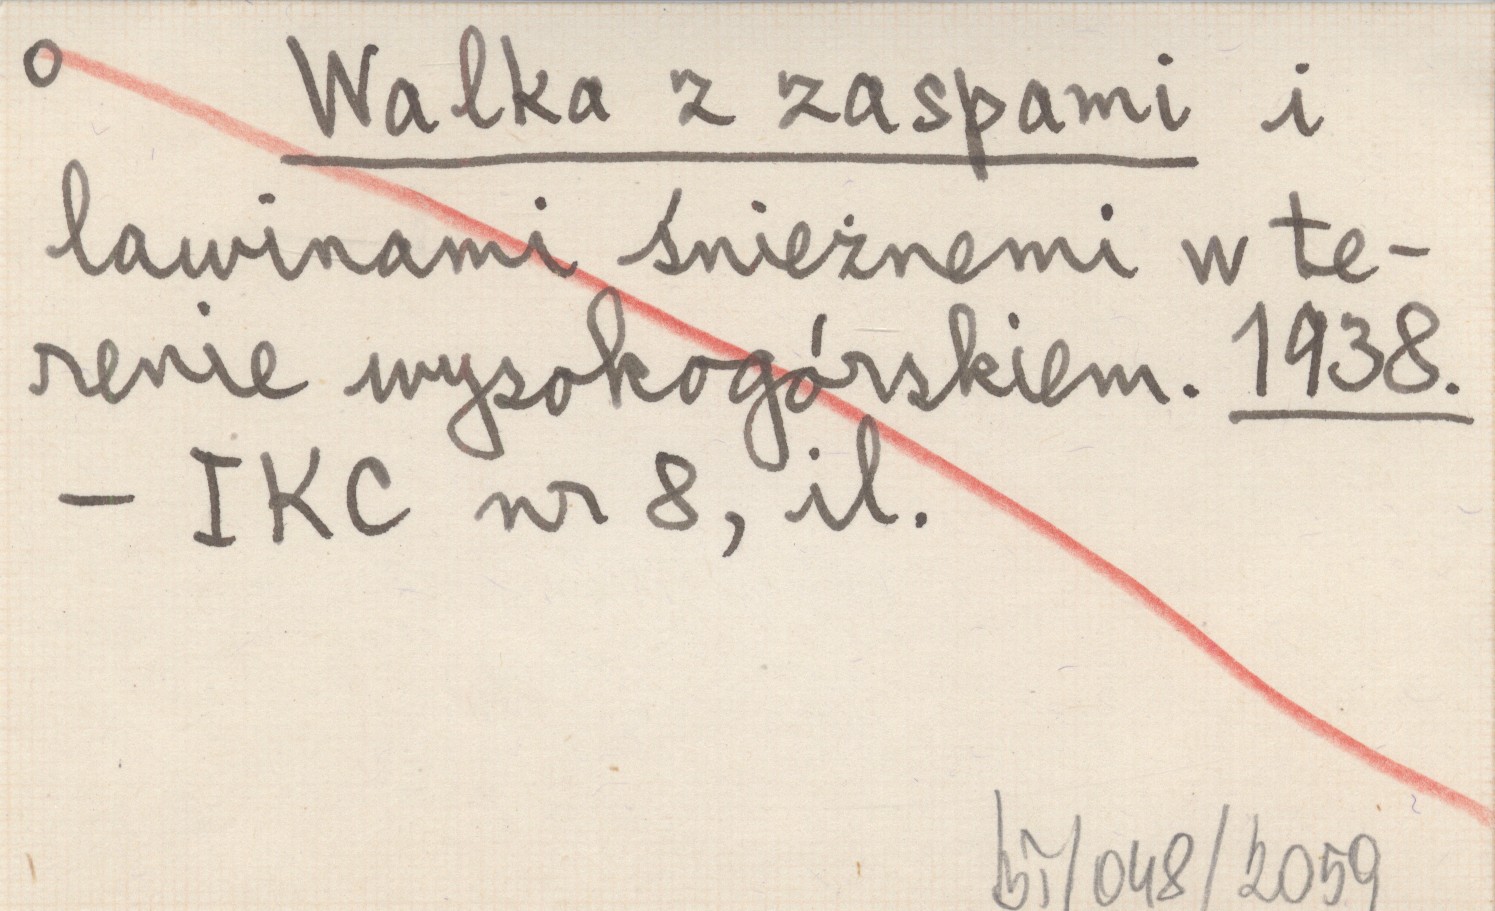 o Walka z zaspami i
lawinami śnieżnemi w te-
renie wysokogórskiem. 1938.
- IKC nr 8, il.
/048/2059